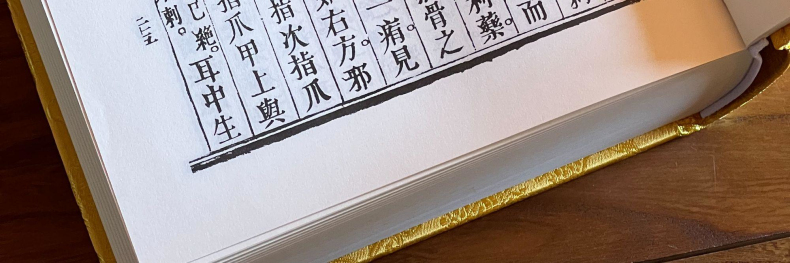 而
刺藥。
骨之
一痏見
右方邪
指次指爪
指爪甲上與
已絕。耳中生
刺。
二三五